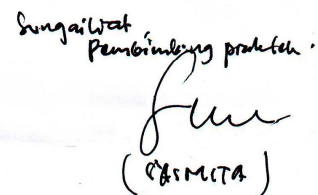 Sungailiat
Pembimbing praktek.
(CASMITA)